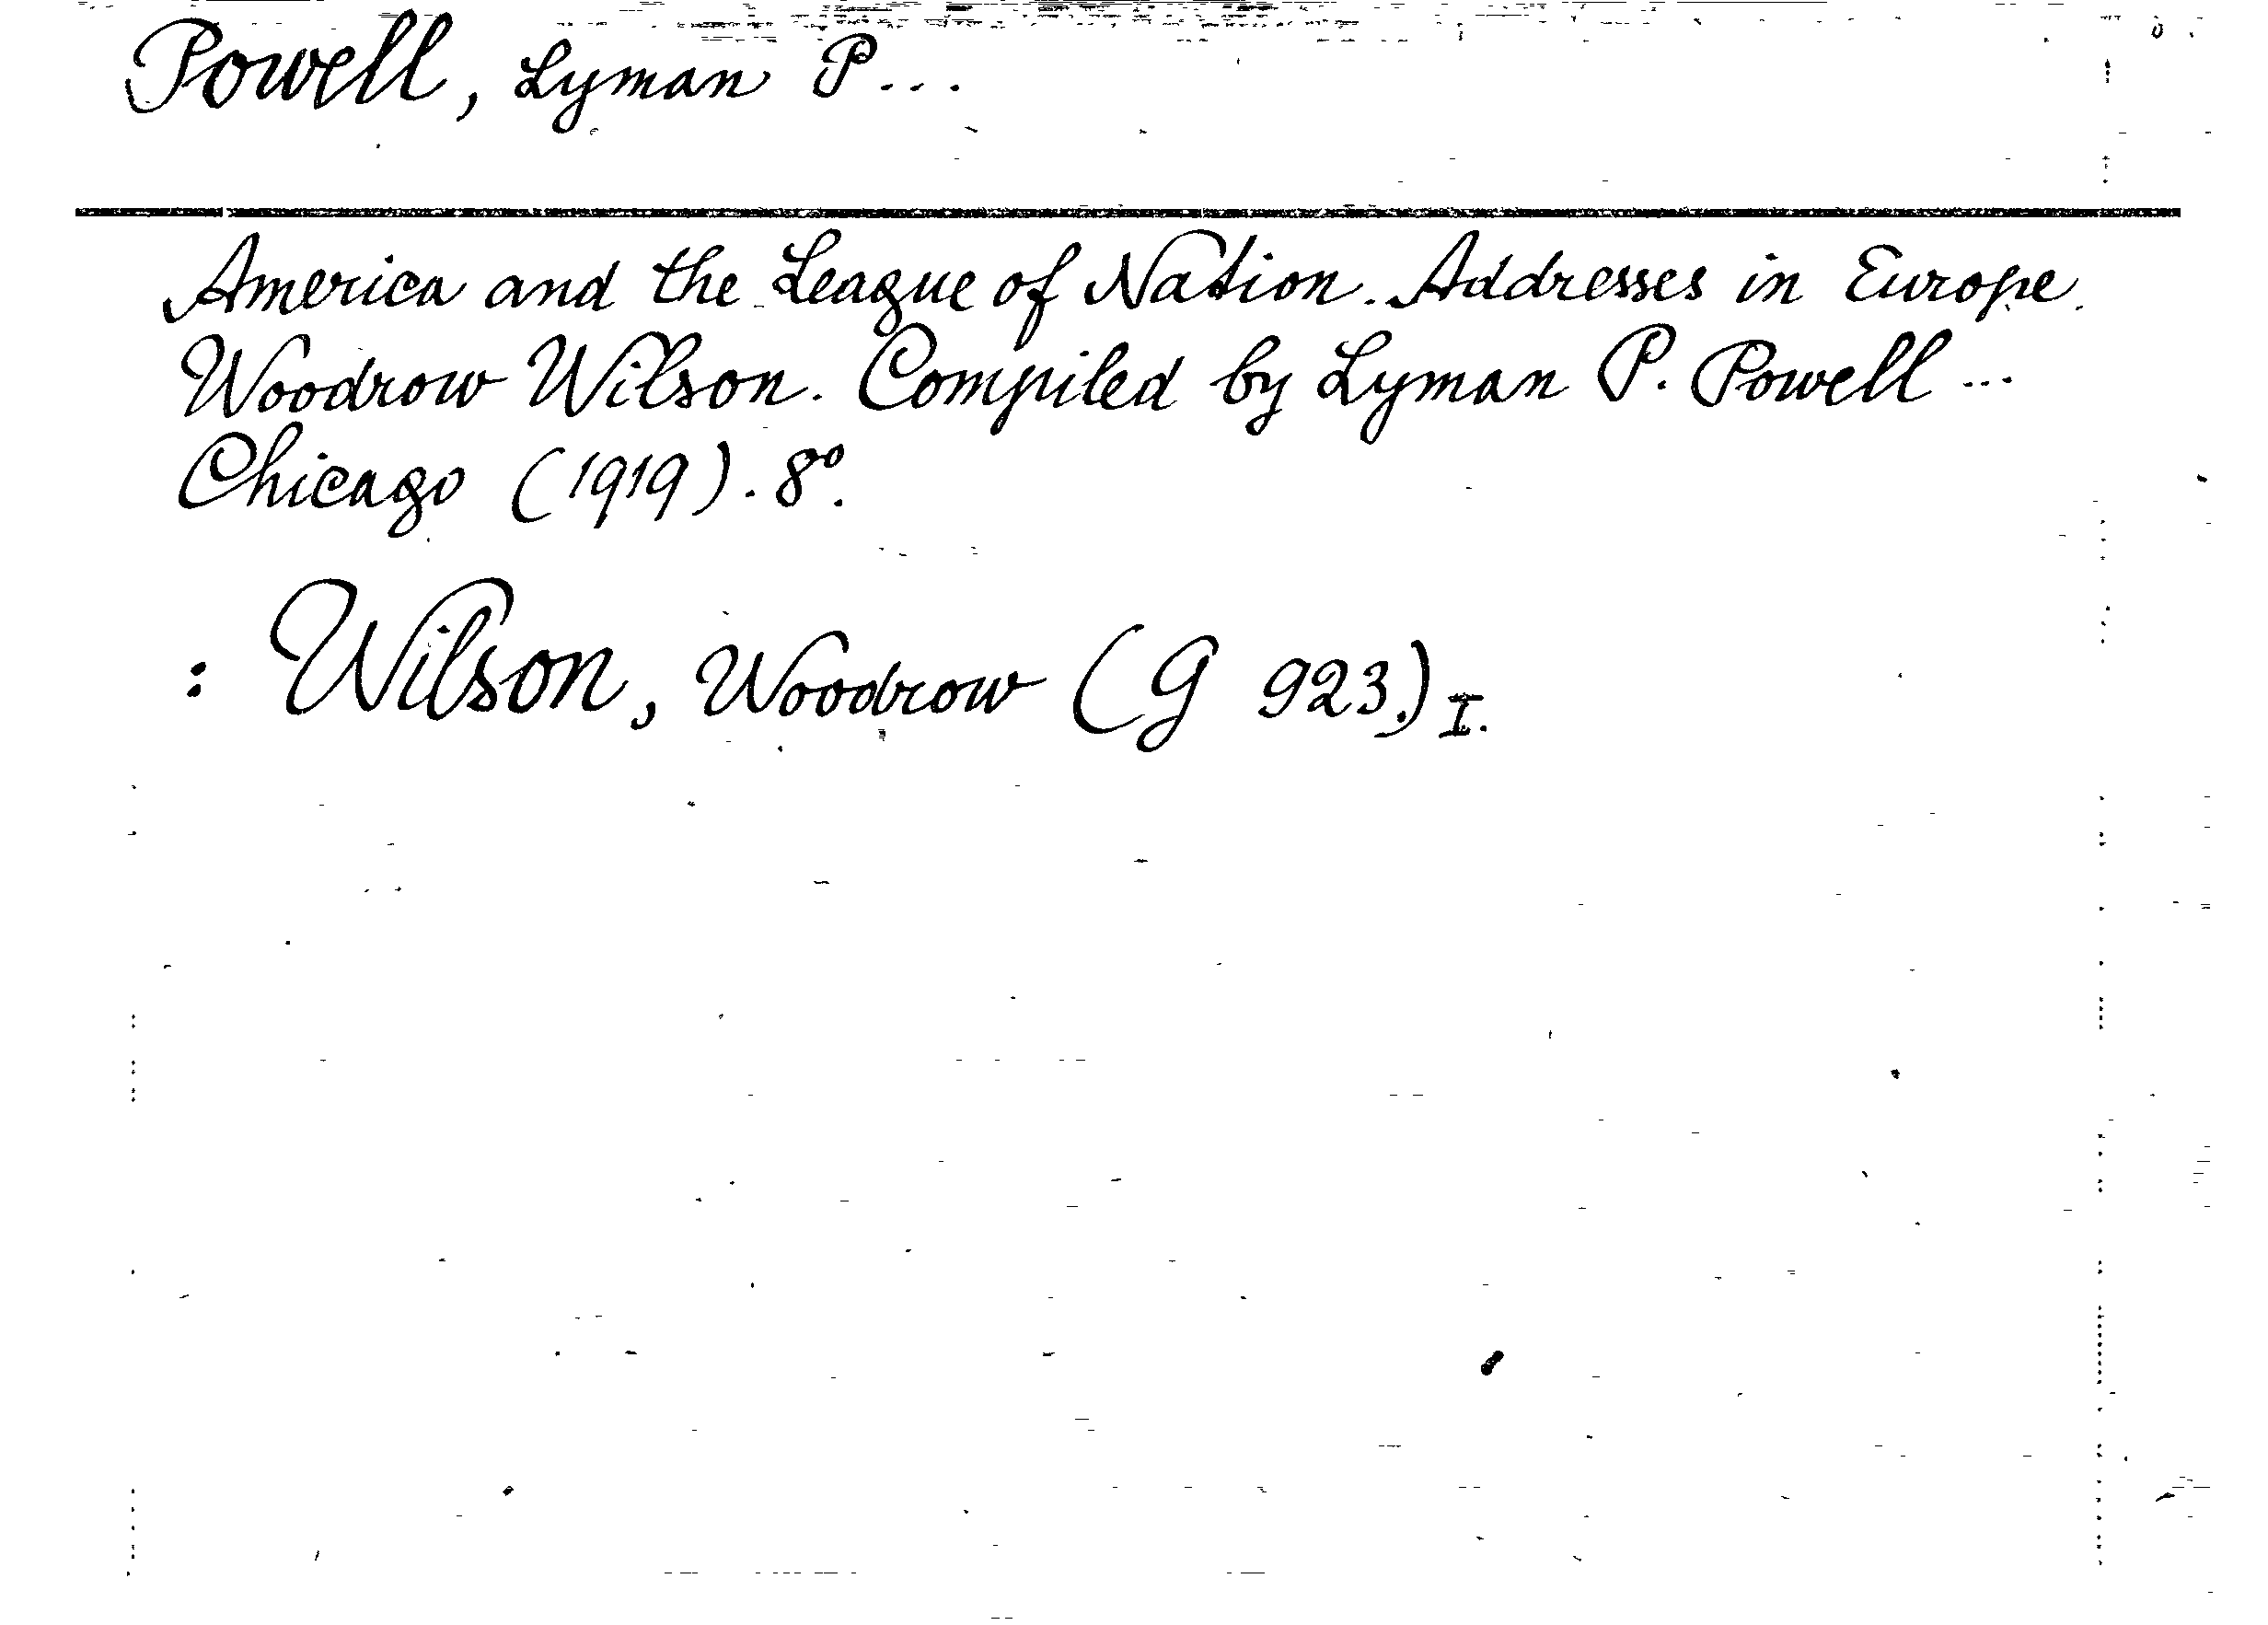 Powell, Lyman P...
America and the League of Nation. Addresses in Europe.
Woodrow Wilson. Compiled by Lyman P. Powell ...
Chicago (1919). 8°.
: Wilson, Woodrow (G 923.) I.